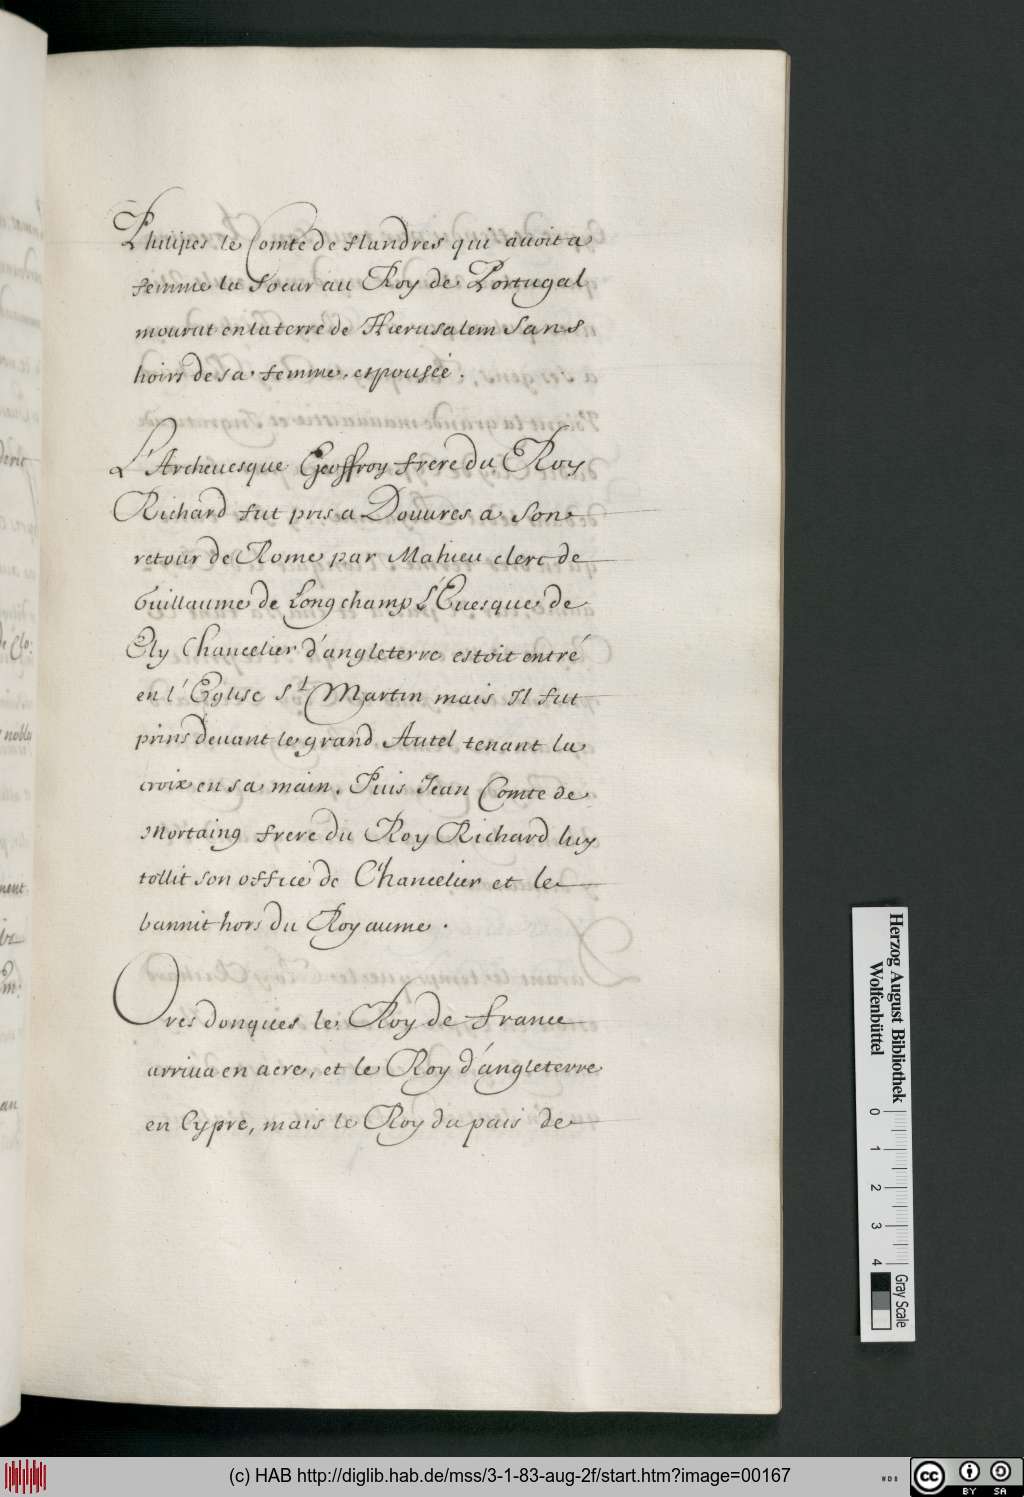 Philipes le Comte de flandres qui auoit a
femme la soeur au Roy de Portugal
mourut en la terre de Hierusalem sans
hoirs de sa femme espousée.
L'Archeuesque Geoffroy frere du Roy
Richard fut pris a Douures a son
retour de Rome par Mahieu clerc de
Guillaume de Longchamp L'Euesque de
Ely Chancelier d'angleterre estoit entré
en l'Eglise St Martin mais Il fut
prins deuant le grand Autel tenant la
croix en sa main. Puis Jean Comte de
Mortaing frere du Roy Richard luy
tollit son office de Chancelier et le
bannit hors du Royaume.
Ores donques le Roy de france
arriua en acre, et le Roy d'angleterre
en Cypre, mais le Roy du pais de
Herzog August Bibliothek
Wolfenbüttel
0 1 2 3 4
Gray Scale
(c) HAB http://diglib.hab.de/mss/3-1-83-aug-2f/start.htm?image=00167
WDB
cc BY SA